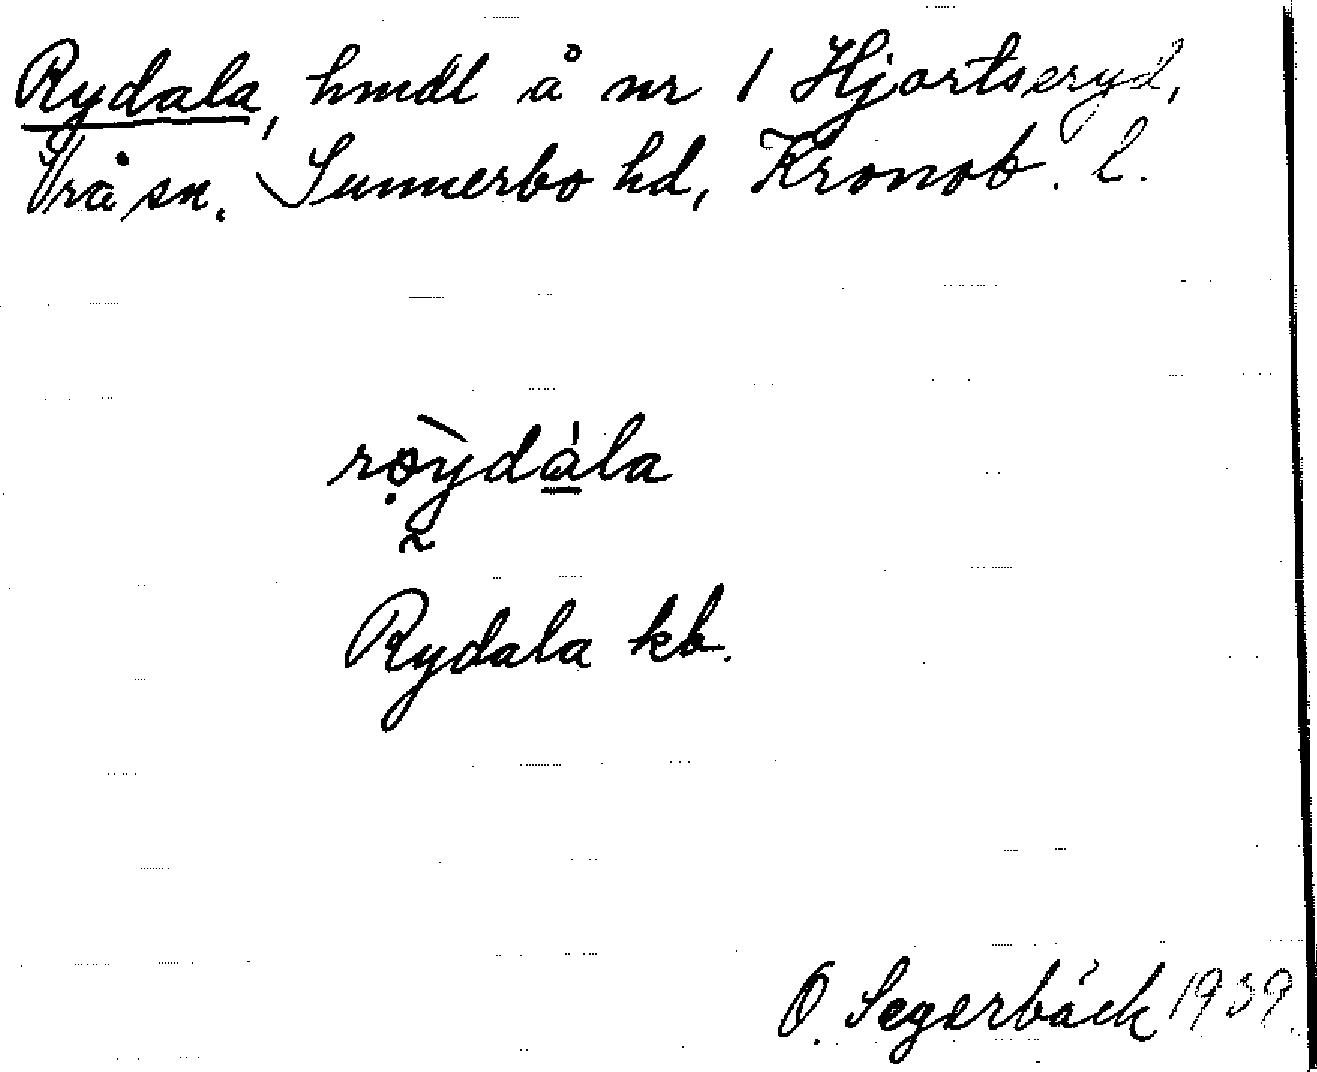 Rydala, hmdl å nr 1 Hjortseryd,
Vrå sn. Sunnerbo hd, Kronob. l.
rø̣̀ydá̱la
Rydala kb.
O. Segerbäck 1939.